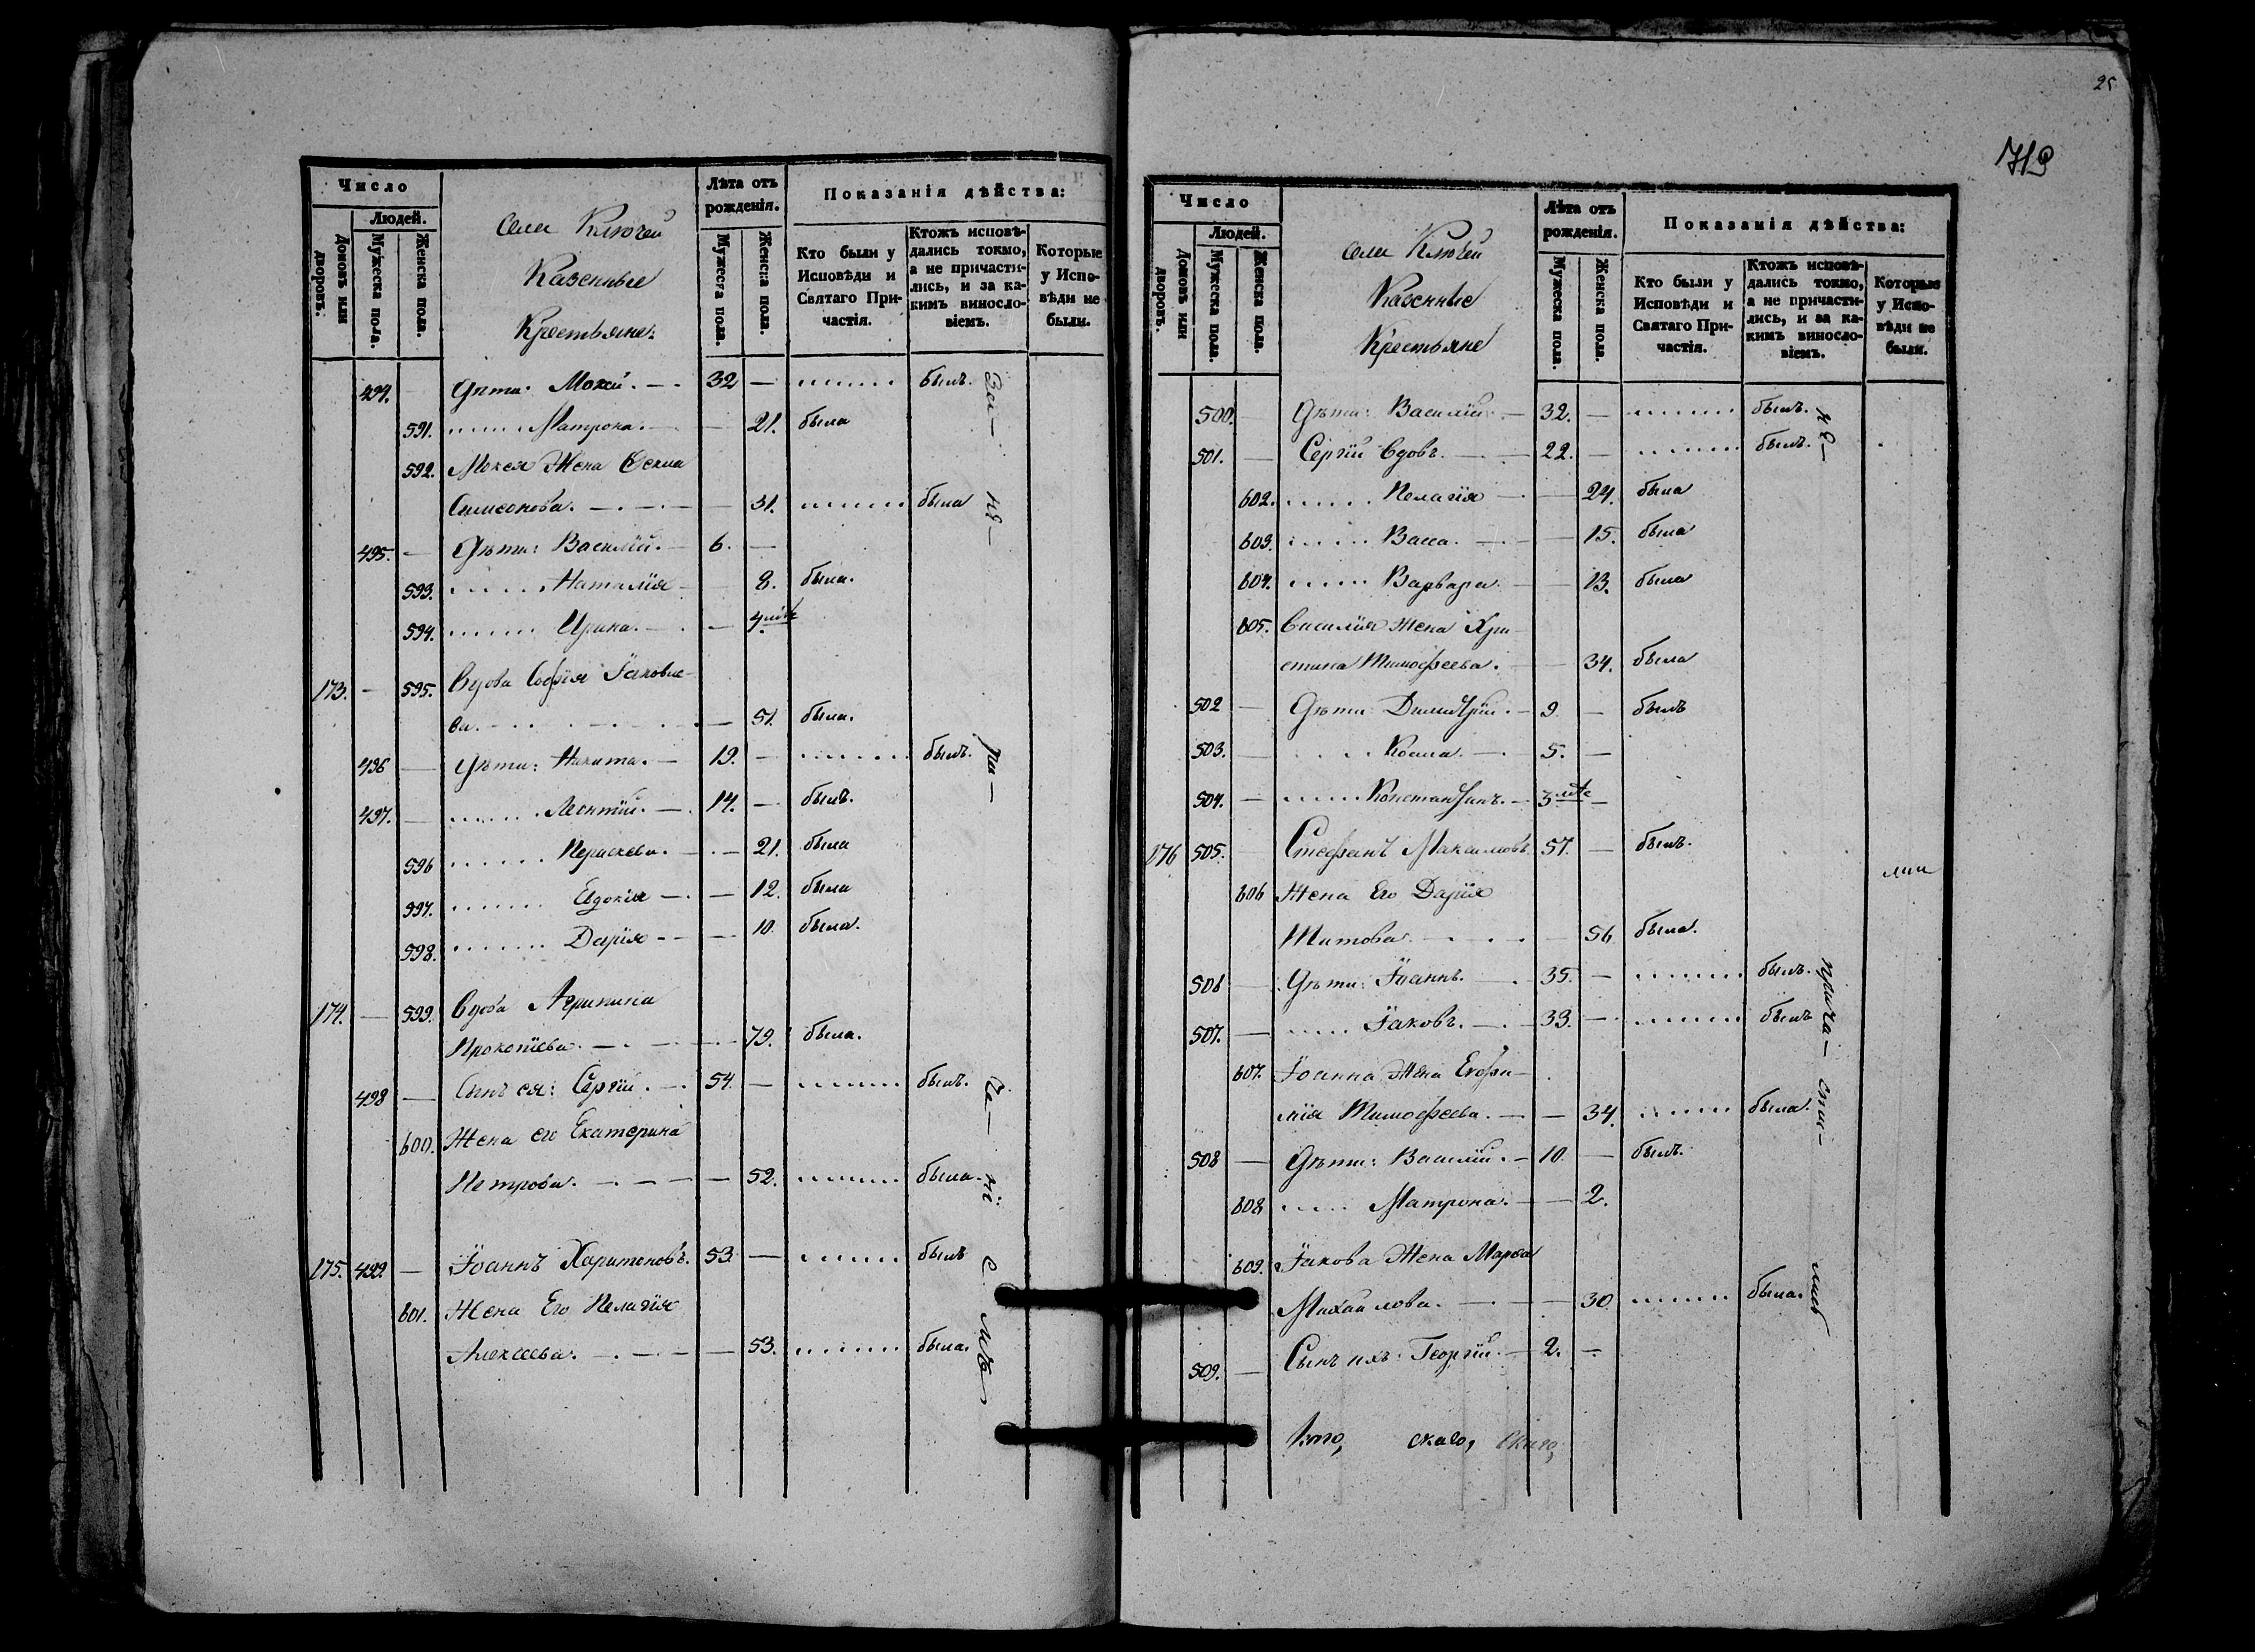 Число
Людей.
Домовъ или дворовъ.
Мужеска пола.
Женска пола.
Села Ключей
Казенные
Крестьяне:
Лѣта отъ рожденія.
Мужеска пола.
Женска пола.
Показанія дѣйства:
Кто были у Исповѣди и Святаго Причастія.
Ктожъ исповѣдались токмо, а не причастились, и за какимъ винословіемъ.
Которые у Исповѣди не были.
494. — Дѣти: Мокей. — 32 — ....... былъ.
591. ...... Матрона. — — 21. была
592. Мокея Жена Ѳекла
Симеонова. — — 31. ....... была
495. — Дѣти: Василій. — 6. —
593. ...... Наталія — 8. была.
594. ...... Ирина. — — 4
173. — 595. Вдова Софія Іаковле-
ва. — — 51. была.
496 — Дѣти: Никита. — 19. — ....... былъ.
497. — ...... Леонтій. — 14. — былъ.
596 ...... Параскева. — — 21. была
597. ...... Евдокія — — 12. была
598. ...... Дарія — — 10. была.
174. — 599. Вдова Агрипина
Прокопіева. — — 79. была.
498 — Сынъ ея: Сергій. — 54. — ....... былъ.
600. Жена его Екатерина
Петрова. — — 52. ....... была.
175. 499. — Іоаннъ Харитоновъ. 53. — ....... былъ
601. Жена Его Пелагія
Алексеева. — — 53. ....... была.
25
719
Число
Людей.
Домовъ или дворовъ.
Мужеска пола.
Женска пола.
Села Ключей
Казенные
Крестьяне
Лѣта отъ рожденія.
Мужеска пола.
Женска пола.
Показанія дѣйства:
Кто были у Исповѣди и Святаго Причастія.
Ктожъ исповѣдались токмо, а не причастились, и за какимъ винословіемъ.
Которые у Исповѣди не были.
500. Дѣти: Василій. — 32. — ....... былъ.
501. — Сергій вдовъ. — 22. — ....... былъ.
602. ...... Пелагія — — 24. была
603. ...... Васса. — — 15. была
604. ...... Варвара. — — 13. была
605. Василія Жена Хри-
стина Тимофеева. — — 34. была
502 — Дѣти Димитрій. — 9. — былъ
503. — ..... Косма. — 5. —
504. — ...... Константинъ. — 3 —
176 505. — Стефанъ Максимовъ. 57. — былъ.
606 Жена Его Дарія
Титова. — — 56 была.
506 — Дѣти: Іоаннъ. — 35. — ....... былъ.
507. — ...... Іаковъ. — 33. — ....... былъ
607. Іоанна Жена Евфи-
мія Тимофеева. — — 34. ...... была.
508 — Дѣти: Василій. — 10. — былъ.
608 ..... Матрона. — — 2.
609. Іакова Жена Марѳа
Михаилова. — — 30 ....... была.
509. — Сынъ ихъ: Георгій. — 2. —
скаго,